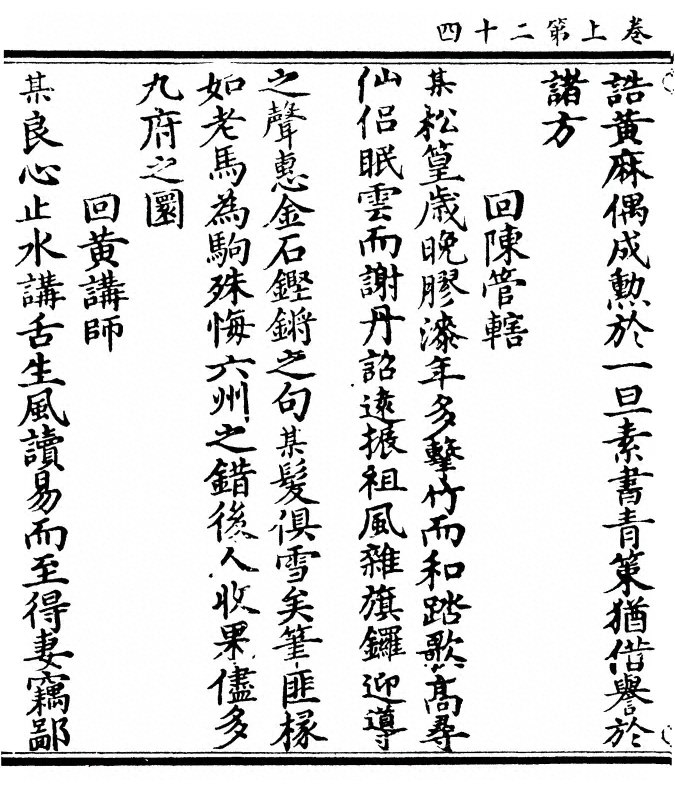 卷上第二十四
誥黃麻偶成勲於一旦素書青策猶借譽於
諸方
回陳管轄
某松篁歲晚膠漆年多擊竹而和踏歌高尋
仙侣眠雲而謝丹詔遠振祖風雜旗鑼迎導
之聲惠金石鏗鏘之句某髮俱雪矣筆匪椽
如老馬為駒殊悔六州之錯後人收果儘多
九府之圜
回黃講師
某良心止水講舌生風讀易而至得妻竊鄙